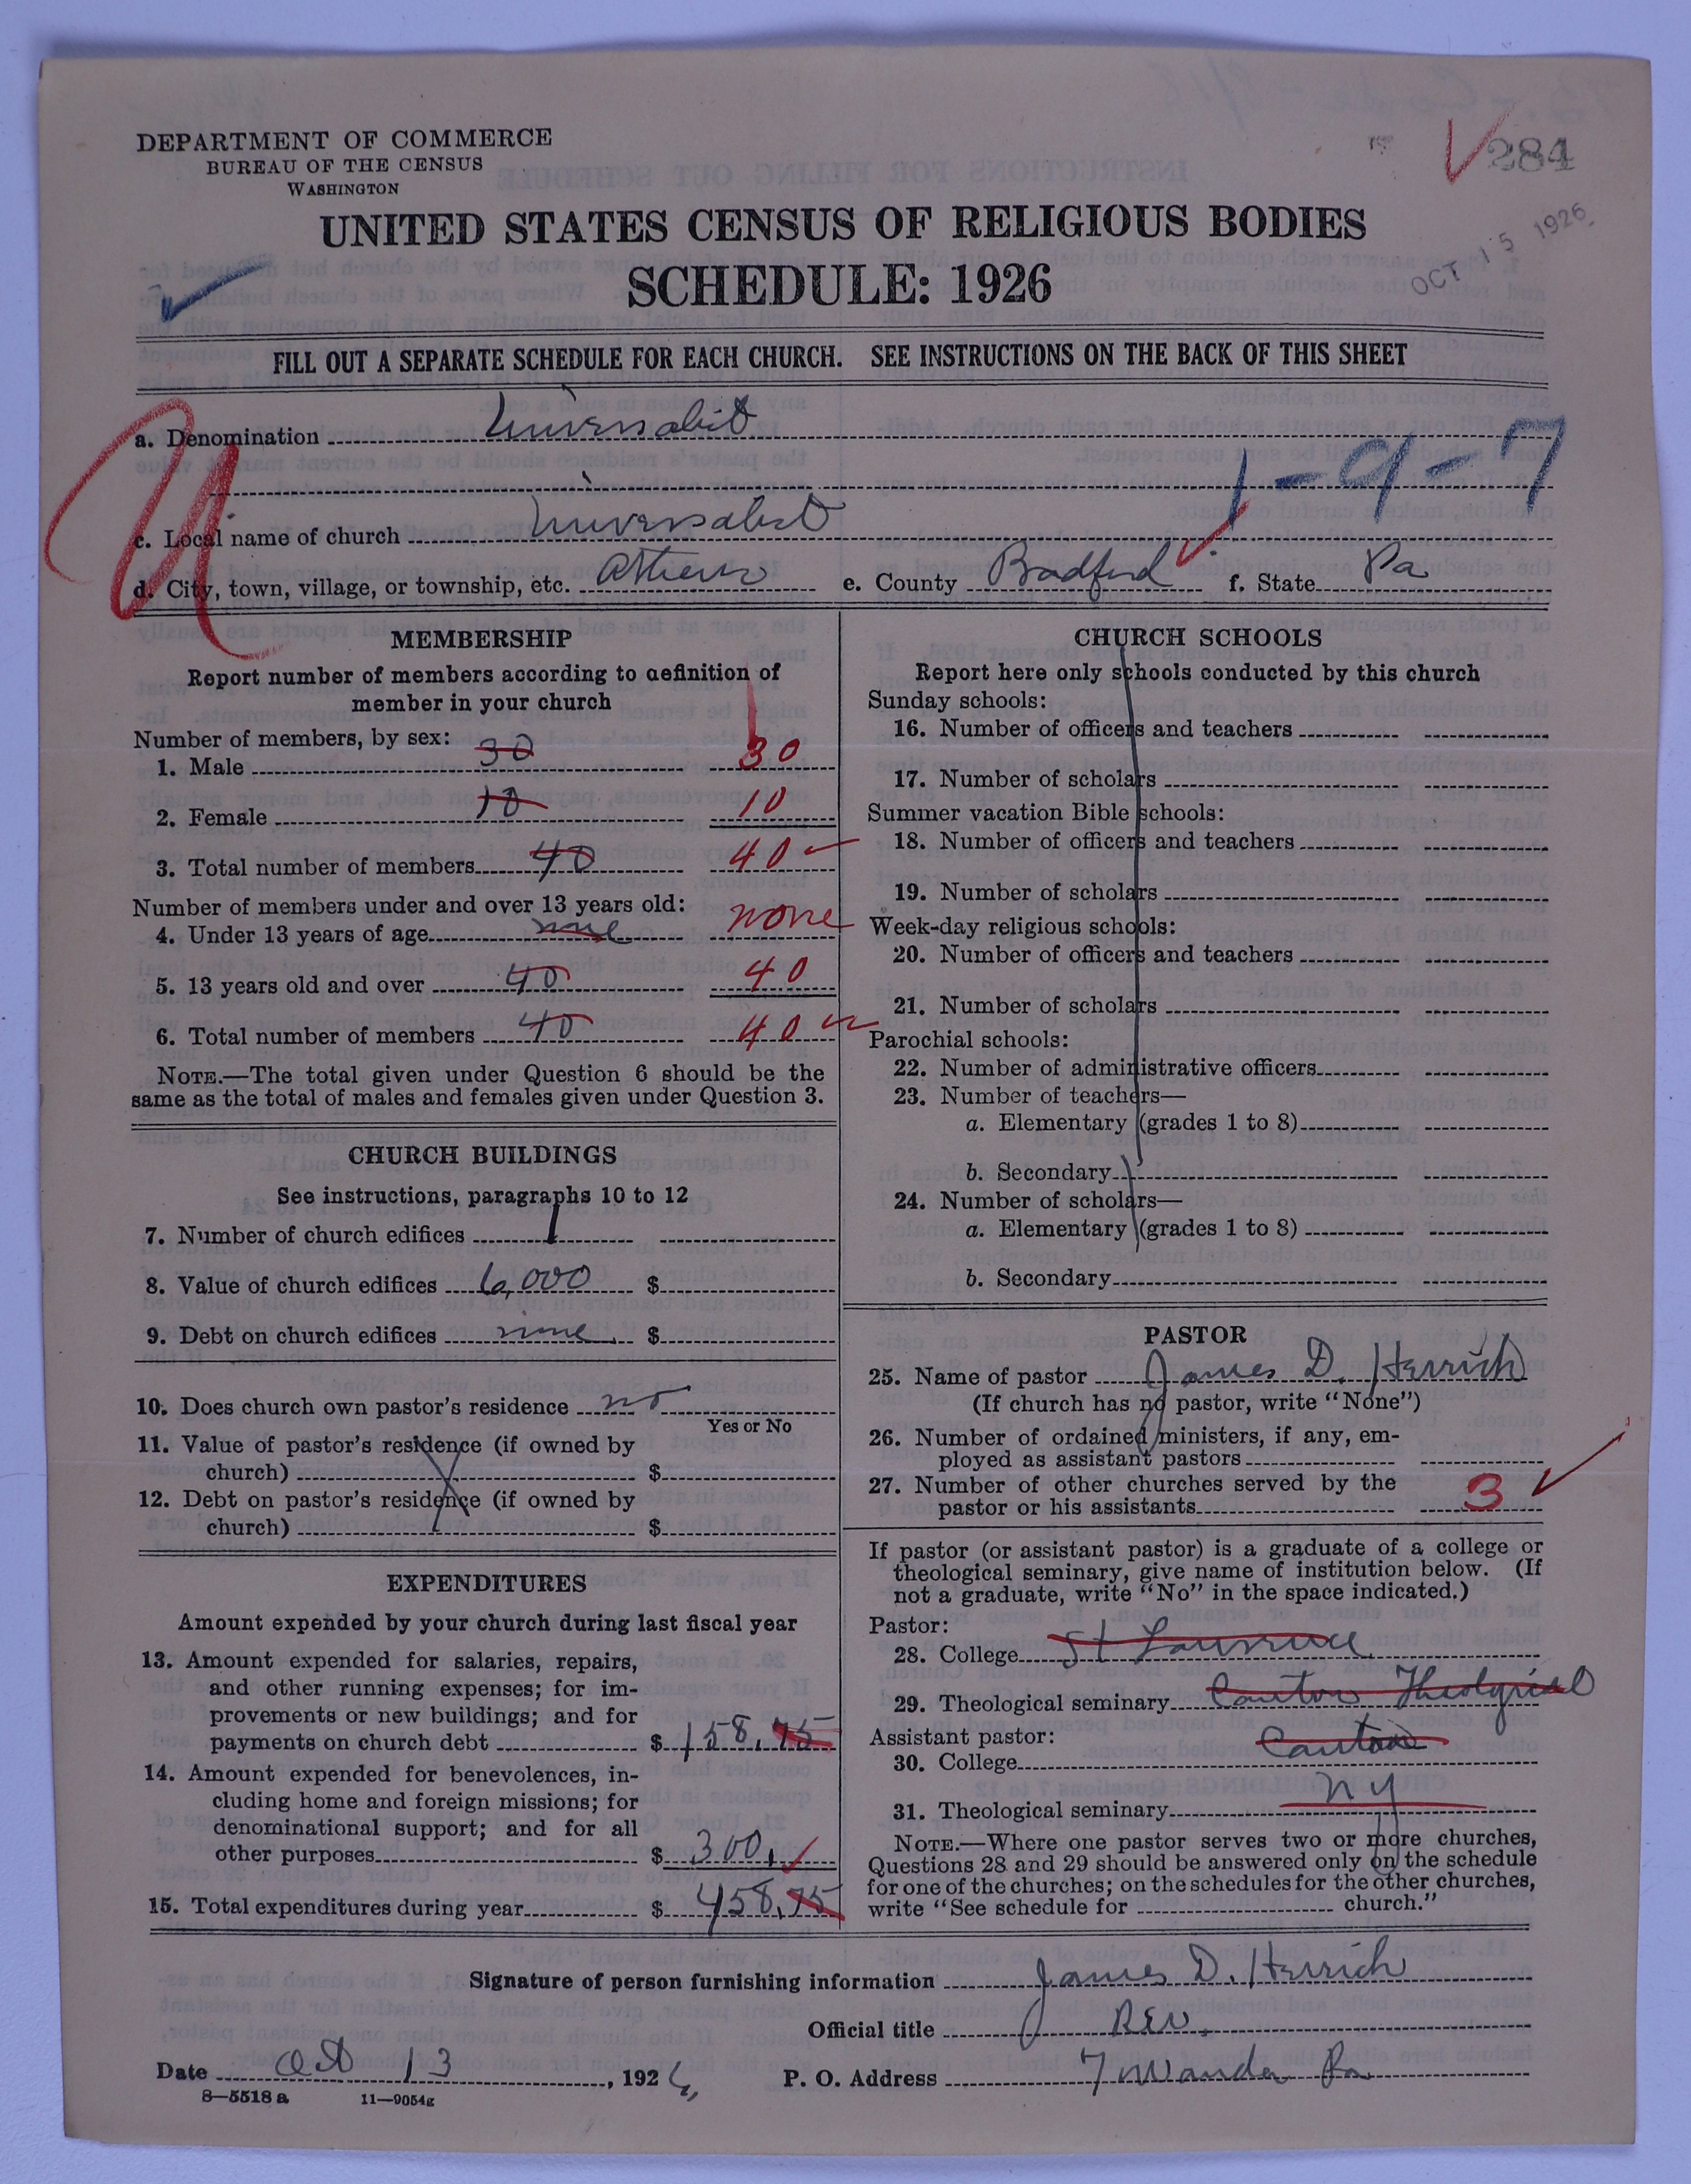 284
OCT 15 1926
DEPARTMENT OF COMMERCE
BUREAU OF THE CENSUS
WASHINGTON
UNITED STATES CENSUS OF RELIGIOUS BODIES
SCHEDULE: 1926
FILL OUT A SEPARATE SCHEDULE FOR EACH CHURCH. SEE INSTRUCTIONS ON THE BACK OF THIS SHEET
a. Denomination Universalist
1-9-7
c. Local name of church Universalist
d. City, town, village, or township, etc. Athens e. County Bradford f. State Pa
MEMBERSHIP
Report number of members according to definition of
member in your church
Number of members, by sex:
1. Male 30 30
2. Female 10 10
3. Total number of members 40 40
Number of members under and over 13 years old:
4. Under 13 years of age none none
5. 13 years old and over 40 40
6. Total number of members 40 40
NOTE.—The total given under Question 6 should be the
same as the total of males and females given under Question 3.
CHURCH BUILDINGS
See instructions, paragraphs 10 to 12
7. Number of church edifices 1
8. Value of church edifices 6,000 $
9. Debt on church edifices none $
10. Does church own pastor's residence no
Yes or No
11. Value of pastor's residence (if owned by
church) $
12. Debt on pastor's residence (if owned by
church) $
EXPENDITURES
Amount expended by your church during last fiscal year
13. Amount expended for salaries, repairs,
and other running expenses; for im-
provements or new buildings; and for
payments on church debt $158.75
14. Amount expended for benevolences, in-
cluding home and foreign missions; for
denominational support; and for all
other purposes $300.
15. Total expenditures during year $458.75
CHURCH SCHOOLS
Report here only schools conducted by this church
Sunday schools:
16. Number of officers and teachers
17. Number of scholars
Summer vacation Bible schools:
18. Number of officers and teachers
19. Number of scholars
Week-day religious schools:
20. Number of officers and teachers
21. Number of scholars
Parochial schools:
22. Number of administrative officers
23. Number of teachers—
a. Elementary (grades 1 to 8)
b. Secondary
24. Number of scholars—
a. Elementary (grades 1 to 8)
b. Secondary
PASTOR
25. Name of pastor James D. Herrick
(If church has no pastor, write "None")
26. Number of ordained ministers, if any, em-
ployed as assistant pastors
27. Number of other churches served by the
pastor or his assistants 3
If pastor (or assistant pastor) is a graduate of a college or
theological seminary, give name of institution below. (If
not a graduate, write "No" in the space indicated.)
Pastor:
28. College St Lawrence
29. Theological seminary Canton Theological
Assistant pastor: Canton
30. College
31. Theological seminary N Y
NOTE.—Where one pastor serves two or more churches,
Questions 28 and 29 should be answered only on the schedule
for one of the churches; on the schedules for the other churches,
write "See schedule for church."
Signature of person furnishing information James D. Herrick
Official title Rev.
Date Oct 13, 1926 P. O. Address Towanda Pa
8-5518 a 11-9054g